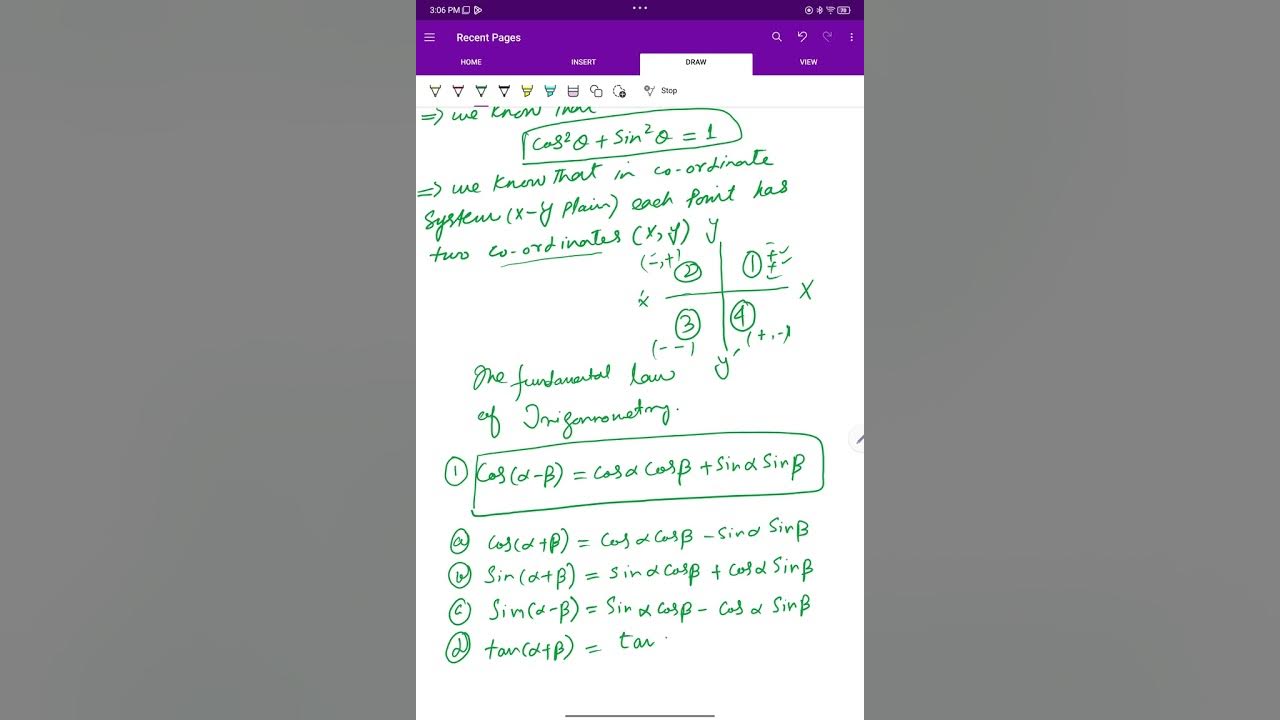 3:06 PM
78
Recent Pages
HOME INSERT DRAW VIEW
Stop
=> we know that
Cos²θ + Sin²θ = 1
=> we know that in co-ordinate
System (X-Y plain) each point has
two co-ordinates (X, Y)
Y
(-,+) ② ① + +
x' X
③ ④
(- -) (+,-)
Y'
The fundamental law
of Trigonometry.
① Cos(α-β) = cosα Cosβ + Sinα Sinβ
ⓐ Cos(α+β) = Cosα Cosβ - Sinα Sinβ
ⓑ Sin(α+β) = Sinα Cosβ + Cosα Sinβ
ⓒ Sin(α-β) = Sinα Cosβ - Cosα Sinβ
ⓓ tan(α+β) = tan